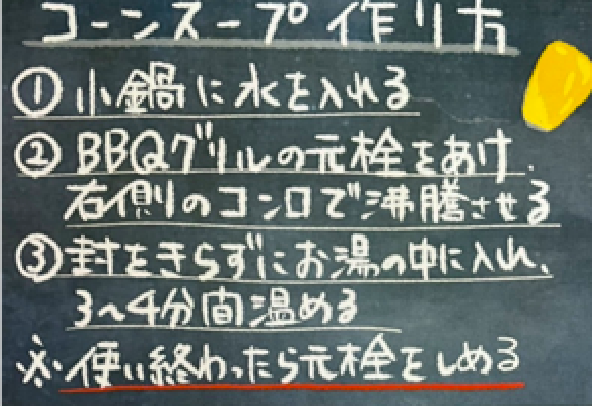 コーンスープ作り方
①小鍋に水を入れる
②BBQグリルの元栓をあけ、
右側のコンロで沸騰させる
③封をきらずにお湯の中に入れ、
3〜4分間温める
※使い終わったら元栓をしめる